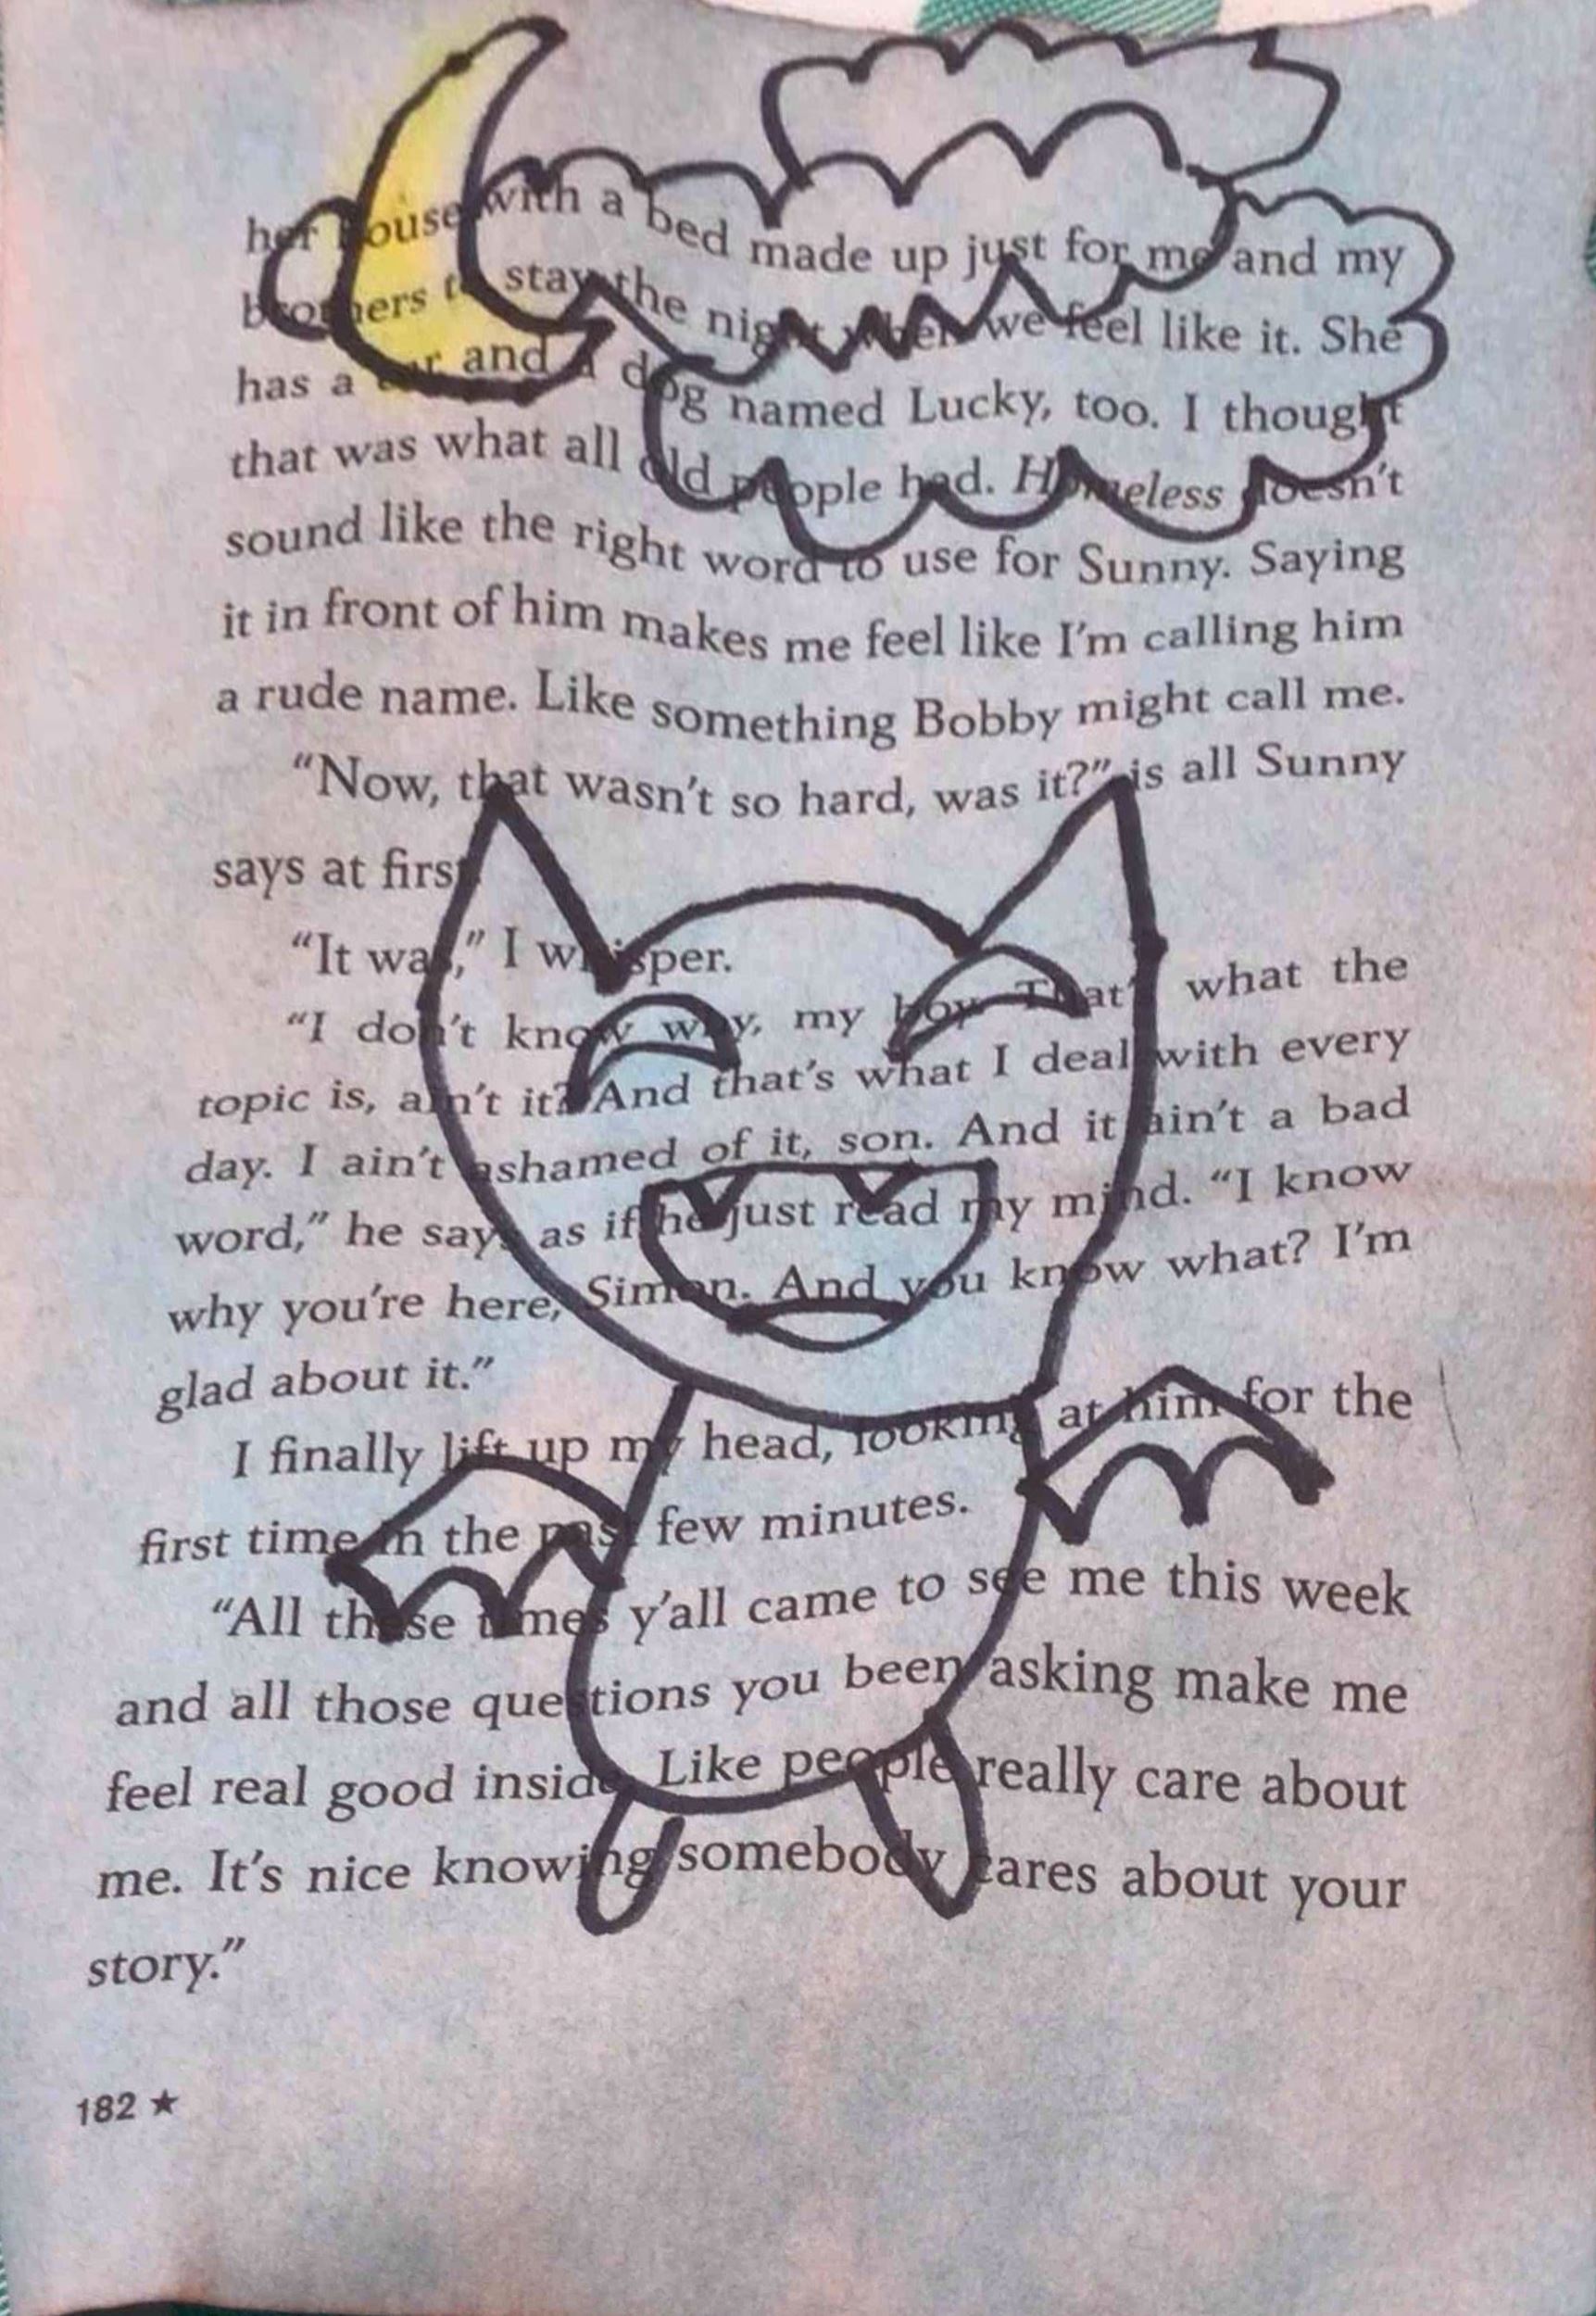 her house with a bed made up just for me and my
brothers to stay the night when we feel like it. She
has a car and a dog named Lucky, too. I thought
that was what all old people had. Homeless doesn't
sound like the right word to use for Sunny. Saying
it in front of him makes me feel like I'm calling him
a rude name. Like something Bobby might call me.
“Now, that wasn't so hard, was it?” is all Sunny
says at first.
“It was,” I whisper.
“I don't know why, my boy. That's what the
topic is, ain't it? And that's what I deal with every
day. I ain't ashamed of it, son. And it ain't a bad
word,” he says as if he just read my mind. “I know
why you're here, Simon. And you know what? I'm
glad about it.”
I finally lift up my head, looking at him for the
first time in the past few minutes.
“All these times y'all came to see me this week
and all those questions you been asking make me
feel real good inside. Like people really care about
me. It's nice knowing somebody cares about your
story.”
182 ★